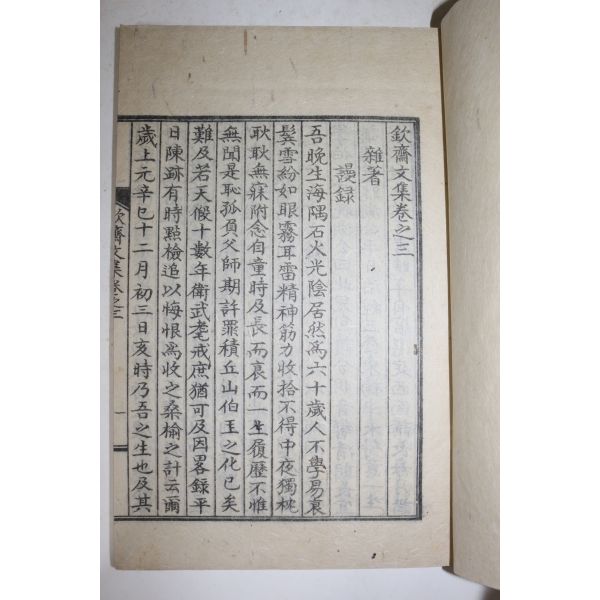 欽齋文集卷之三
雜著
謾録
吾晩生海隅石火光陰居然爲六十歲人不學易衰
鬂雪紛如眼霧耳雷精神筋力收拾不得中夜獨枕
耿耿無寐附念自童時及長而衰而一生履歷不惟
無聞是恥孤負父師期許罪積丘山伯玉之化已矣
難及若天假十數年衛武耄戒庶猶可及因畧錄平
日陳跡有時點檢追以悔恨爲收之桑榆之計云爾
歲上元辛巳十二月初三日亥時乃吾之生也及其
欽齋文集卷之三
一